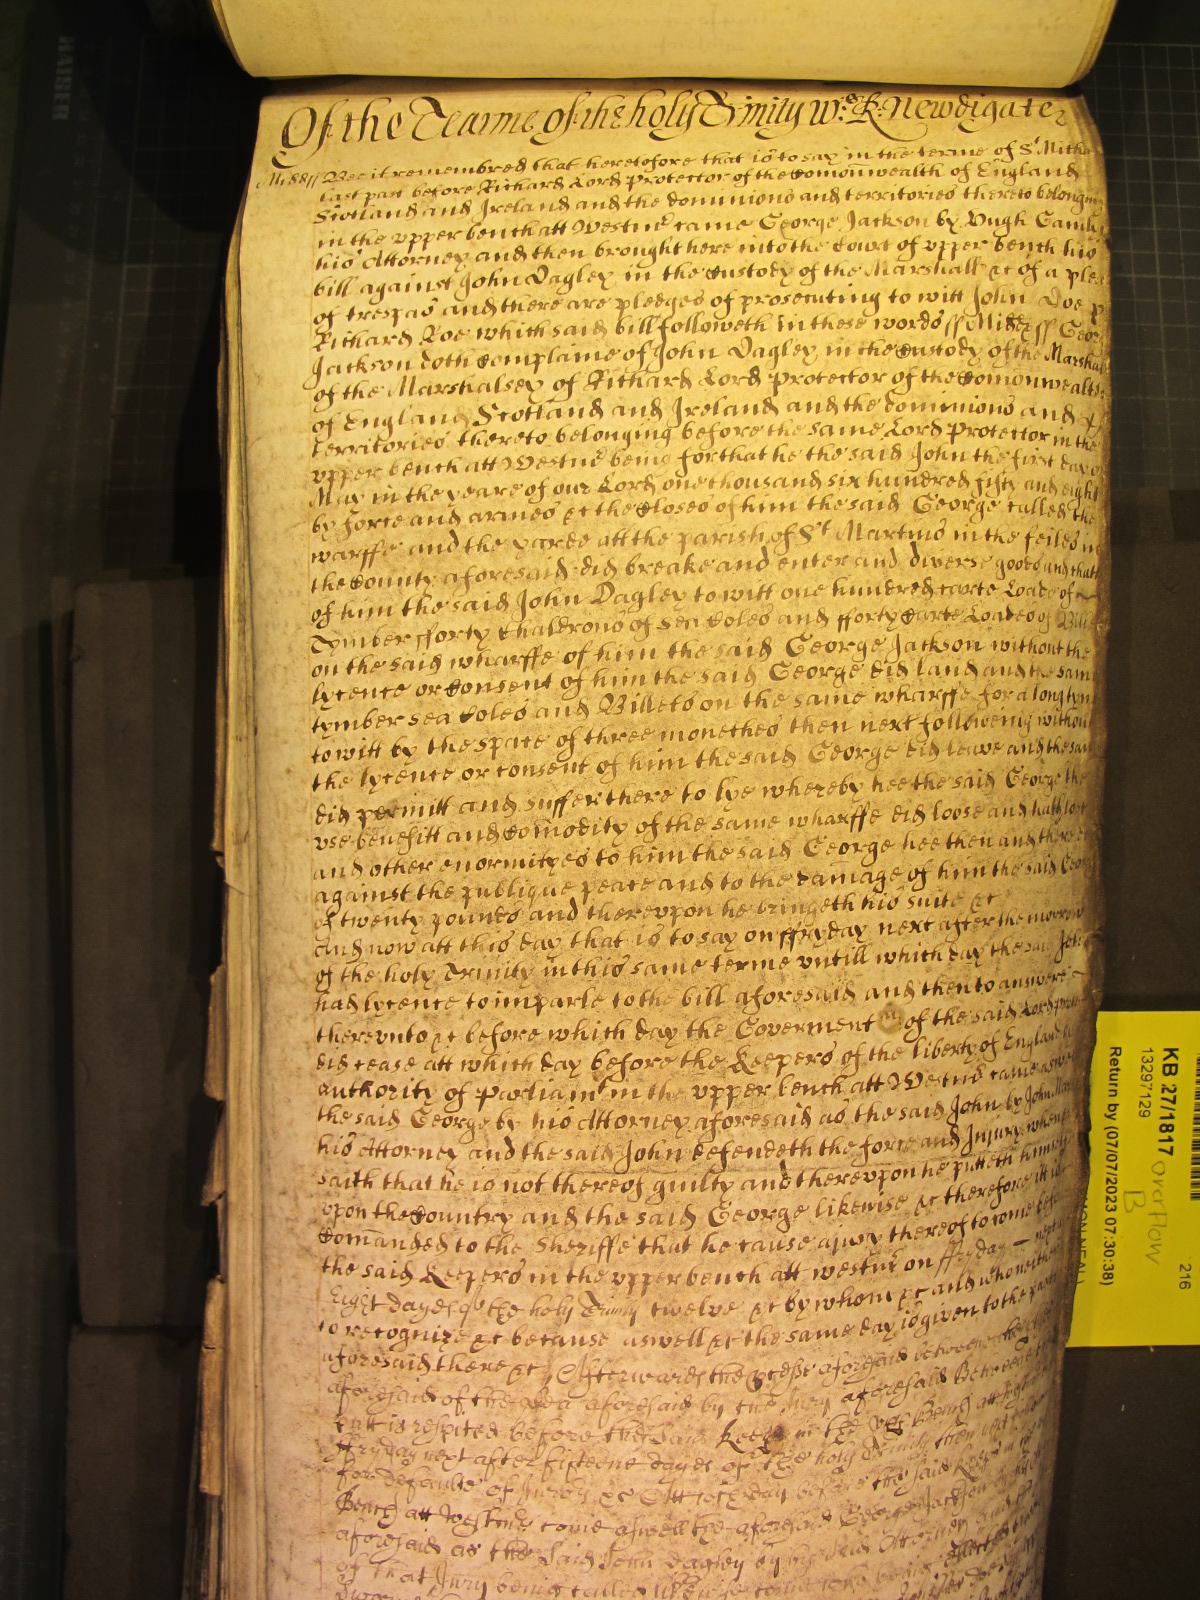 Of the Tearme of the holy Trinity wth: R: Newdigate
Midd ss Bee it remembred that heretofore that is to say in the terme of St Micha
last past before Richard Lord Protector of the Comonwealth of England
Scotland and Ireland and the dominions and territories thereto belonging
in the vpper bench att Westmr came George Jackson by Hugh
his Attorney and then brought here into the Court of vpper bench his
bill against John Dagley in the Custody of the Marshall &c of a plea
of trespas and there are pledges of prosecuting to witt John Doe
Richard Roe which said bill followeth in these words ss Midd ss Georg
Jackson doth Complaine of John Dagley in the Custody of the Marshall
of the Marshalsey of Richard Lord Protector of the Comonwealth
of England Scotland and Ireland and the dominions and
territories thereto belonging before the same Lord Protector in the
vpper bench att Westmr being for that he the said John the first day of
May in the yeare of our Lord one thousand six hundred fifty and eight
by force and armes &c the Closes of him the said George called the
warffe and the yarde att the parish of St Martins in the feilds in
the County aforesaid did breake and enter and diverse goods and chatt
of him the said John Dagley to witt one hundred carte Loades of
Tymber fforty Chaldrons of sea Coles and fforty Carte Loades of Bill
on the said wharffe of him the said George Jackson without the
lycence or Consent of him the said George did land and the sam
tymber sea Coles and Billets on the same wharffe for a long tym
to witt by the space of three monethes then next followeing withou
the lycence or consent of him the said George did leave and the sam
did permitt and suffer there to lye whereby hee the said George the
vse benefitt and Comodity of the same wharffe did loose and hath lost
and other enormityes to him the said George hee then and there did
against the publique peace and to the damage of him the said Georg
of twenty pounds and therevpon he bringeth his suite &c
And now att this day that is to say on ffryday next after the morrow
of the holy Trinity in this same terme vntill which day the said John
had lycence to imparle to the bill aforesaid and then to answere
therevnto &c before which day the Goverment of the said Lord
did cease att which day before the Keepers of the liberty of England
authority of parliamt in the vpper bench att Westmr came aswell
the said George by his Attorney aforesaid as the said John by John
his Attorney and the said John defendeth the force and Injury when
saith that he is not thereof guilty and therevpon he putteth himself
vpon the Country and the said George likewise &c therefore it is
Comanded to the Sheriffe that he cause a jury thereof to come before
the said Keepers in the vpper bench att westmr on ffryday next
Eight dayes of the holy Trinity twelve &c by whom &c and who neither
to recognize &c because aswell &c the same day is given to the
aforesaid there &c Afterwards the processe aforesaid betweene the
aforesaid of the plea aforesaid by the Jury aforesaid Betweene
putt is respited before the said Keeps in the vpp Bench att
ffryday next after fifteene dayes of the holy Trinity then next
for default of Jurors &c Att which day before the said Keeps in
Bench att Westmr come aswell the aforesaid George Jackson
aforesaid as the said John Dagley by his said Attorney and
of that Jury being called likewise come who being
KB 27/1817
13297129
Return by (07/07/2023 07:30:38)
216
overflow
B
HAISER